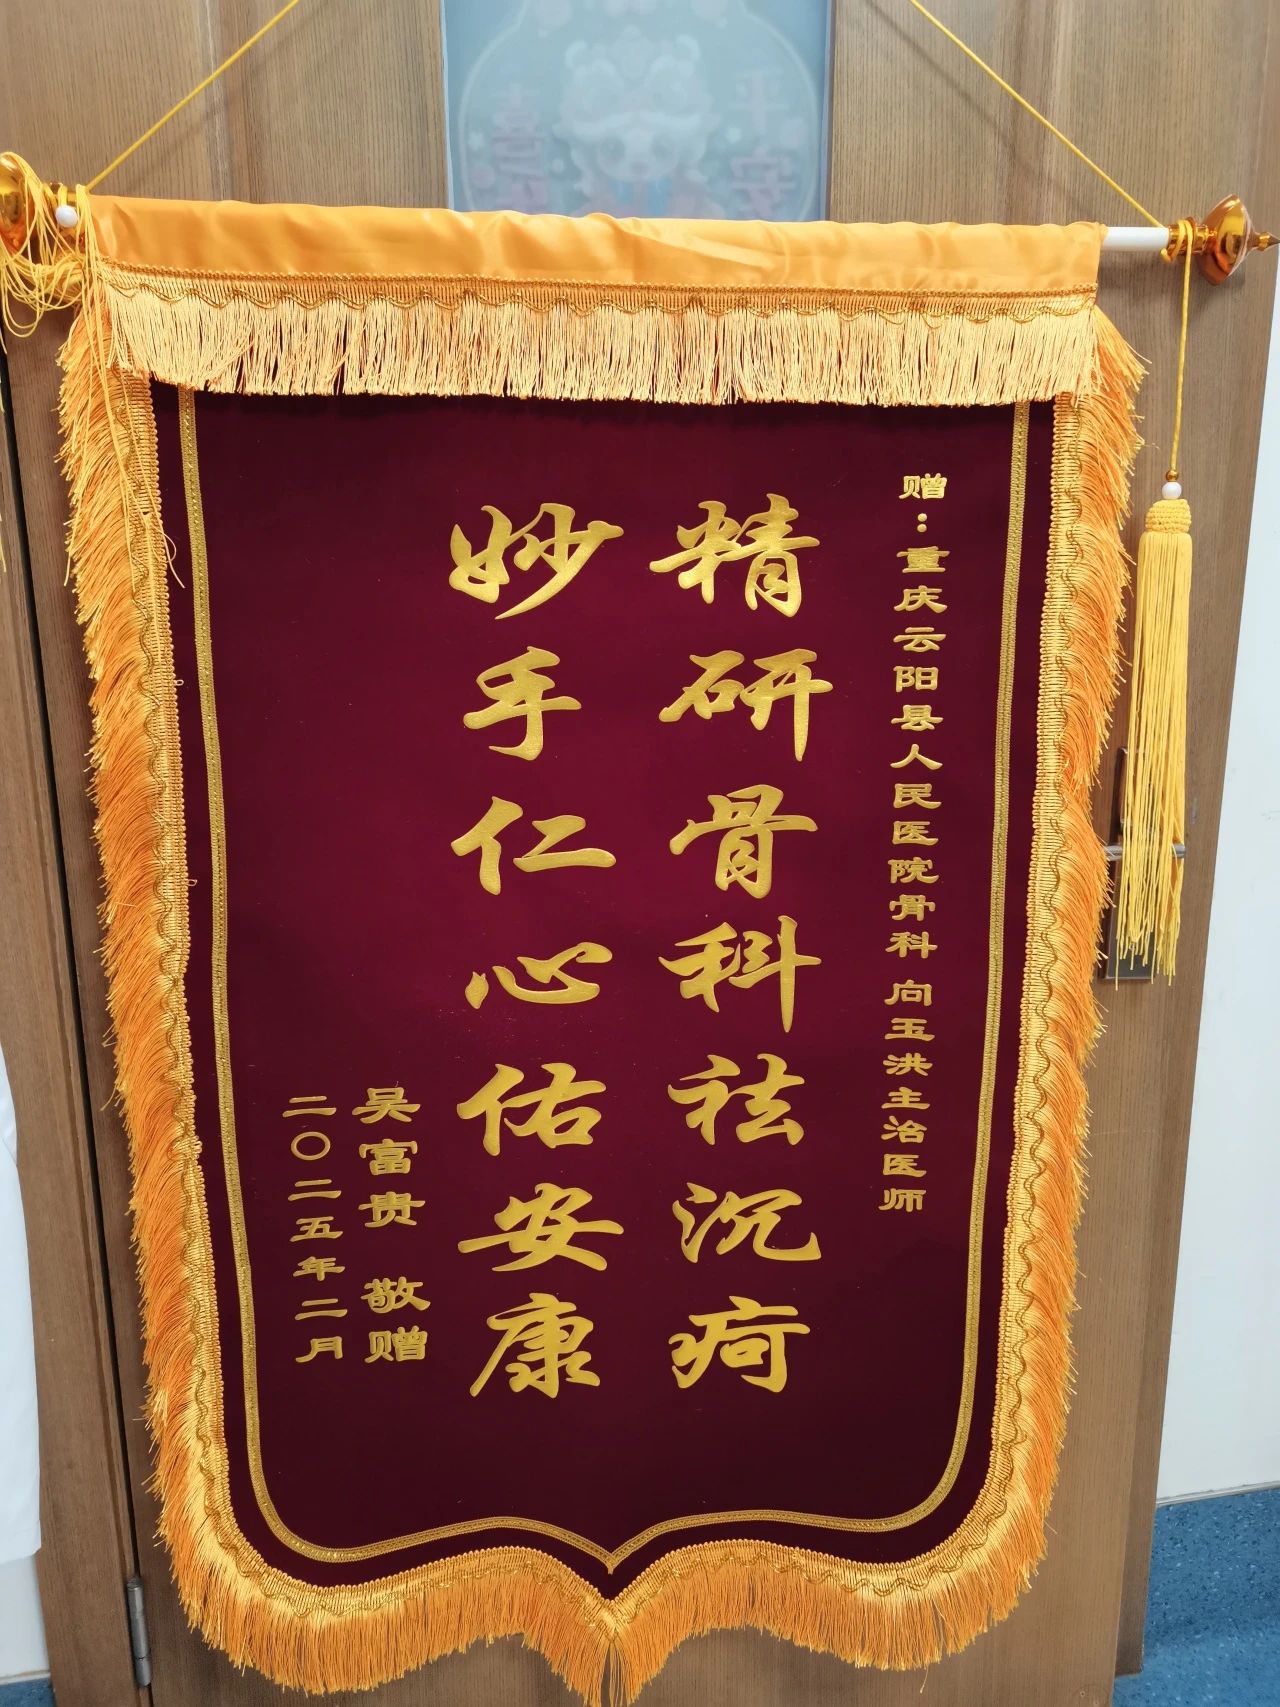 赠：重庆云阳县人民医院骨科 向玉洪主治医师
精研骨科祛沉疴
妙手仁心佑安康
吴富贵 敬赠
二〇二五年二月
平安
喜